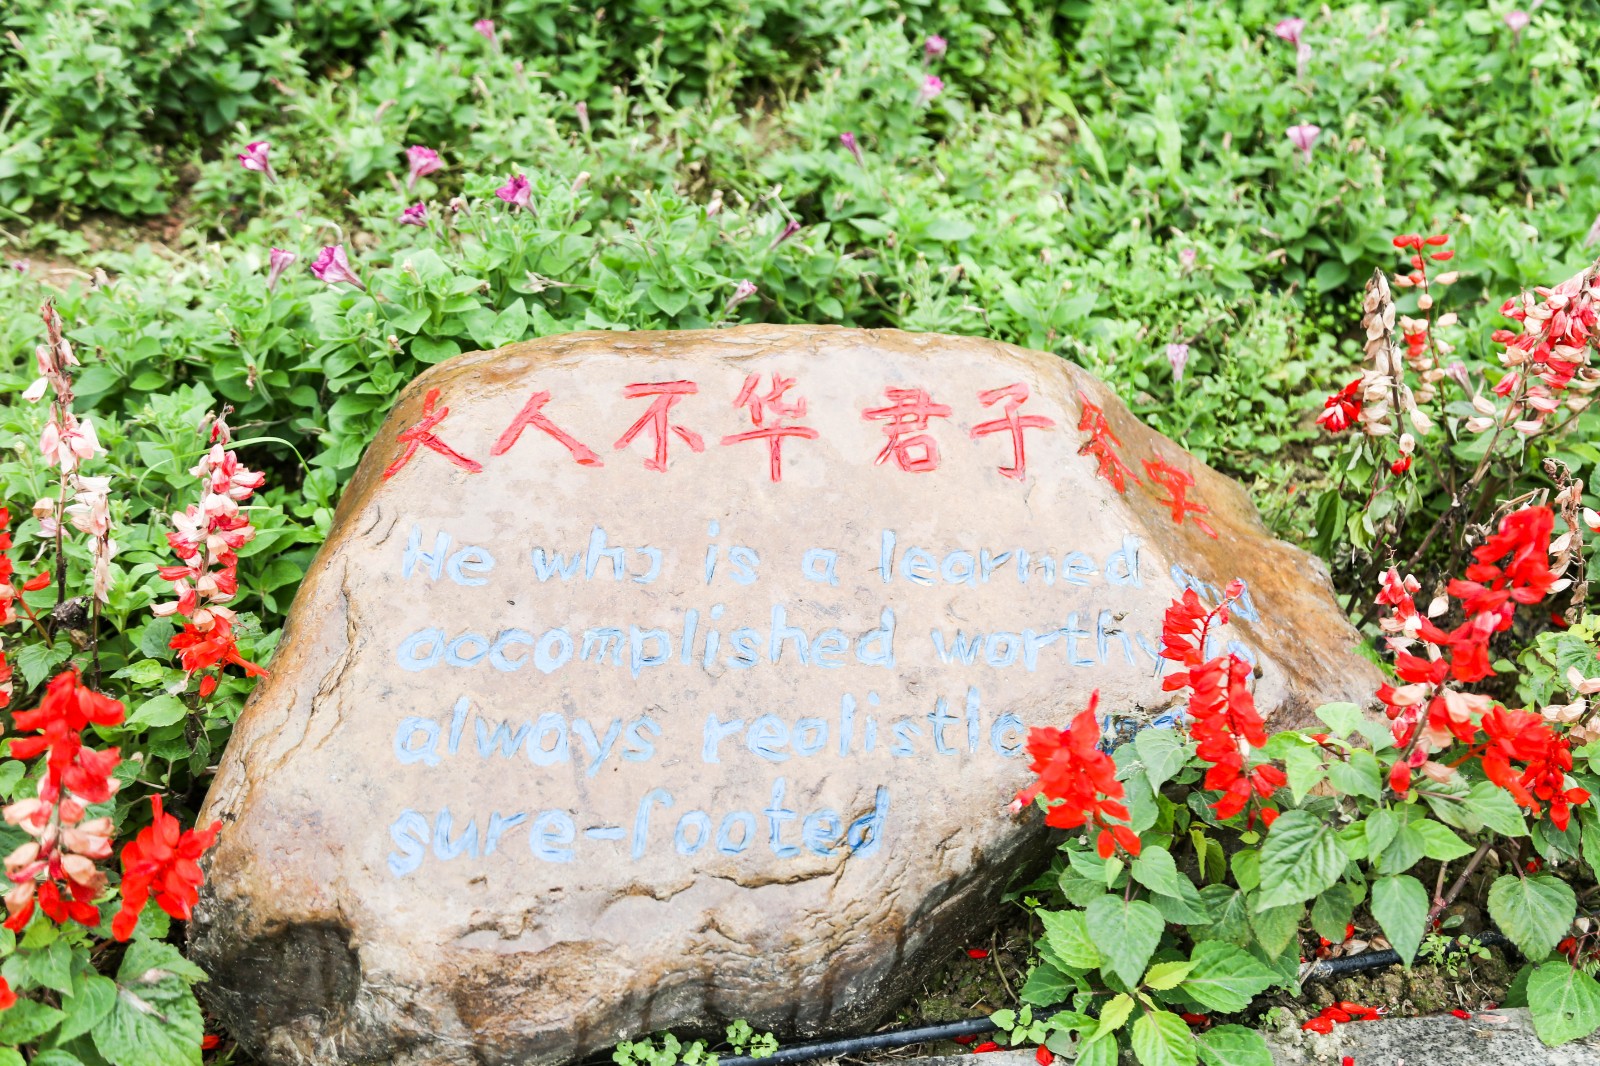 大人不华 君子务实
He who is a learned
accomplished worthy is
always realistic and
sure-footed